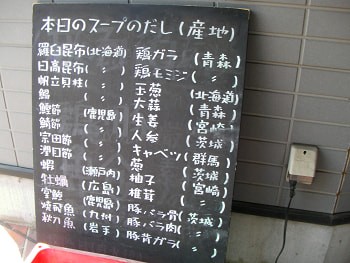 本日のスープのだし(産地)
羅臼昆布(北海道) 鶏ガラ(青森)
日高昆布(〃) 鶏モミジ(〃)
帆立貝柱(〃) 玉葱(北海道)
鰯(〃) 大蒜(青森)
鰹節(鹿児島) 生姜(宮崎)
鯖節(〃) 人参(茨城)
宗田節(〃) キャベツ(群馬)
(〃) 葱(茨城)
蝦(瀬戸内) 柚子(宮崎)
牡蠣(広島) 椎茸(〃)
(鹿児島) 豚バラ骨(茨城)
焼飛魚(九州) 豚バラ肉(〃)
秋刀魚(岩手) 豚背ガラ(〃)